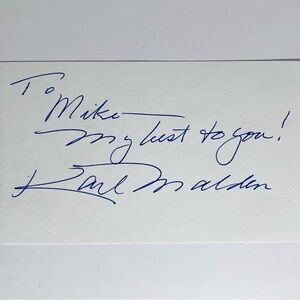 To
Mike—
My best to you!
Karl Malden